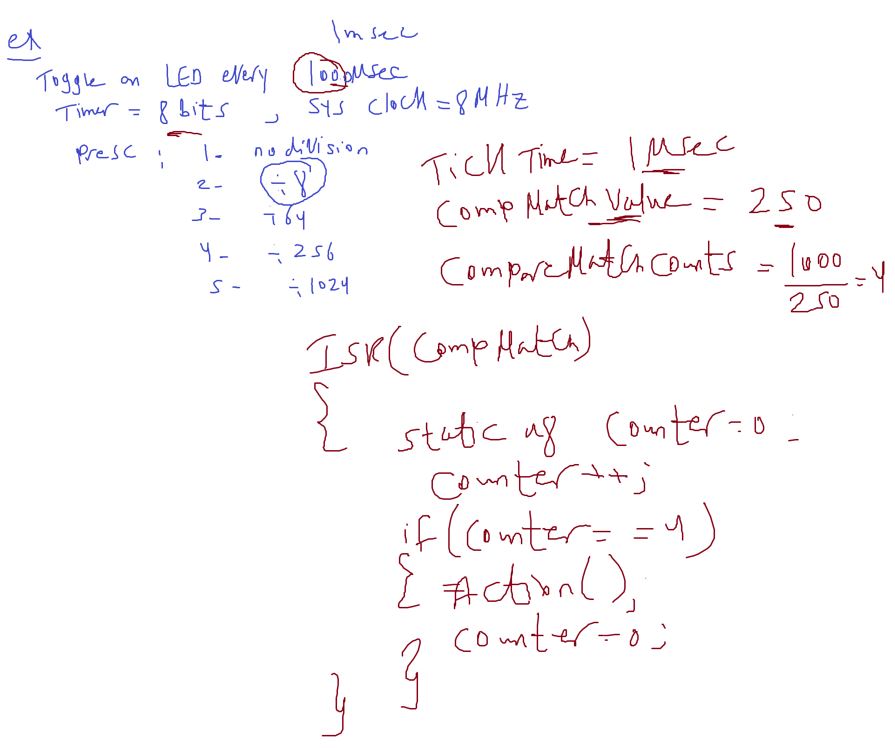 ex
1msec
Toggle an LED every 1000μsec
Timer = 8 bits , sys clock = 8 MHz
Presc : 1- no division
2- ÷8
3- ÷64
4- ÷256
5- ÷1024
Tick Time = 1μsec
Comp Match Value = 250
Compare Match Counts = 1000/250 = 4
ISR(Comp Match)
{
static u8 Counter=0;
Counter++;
if(Counter==4)
{ Action();
counter=0;
}
}